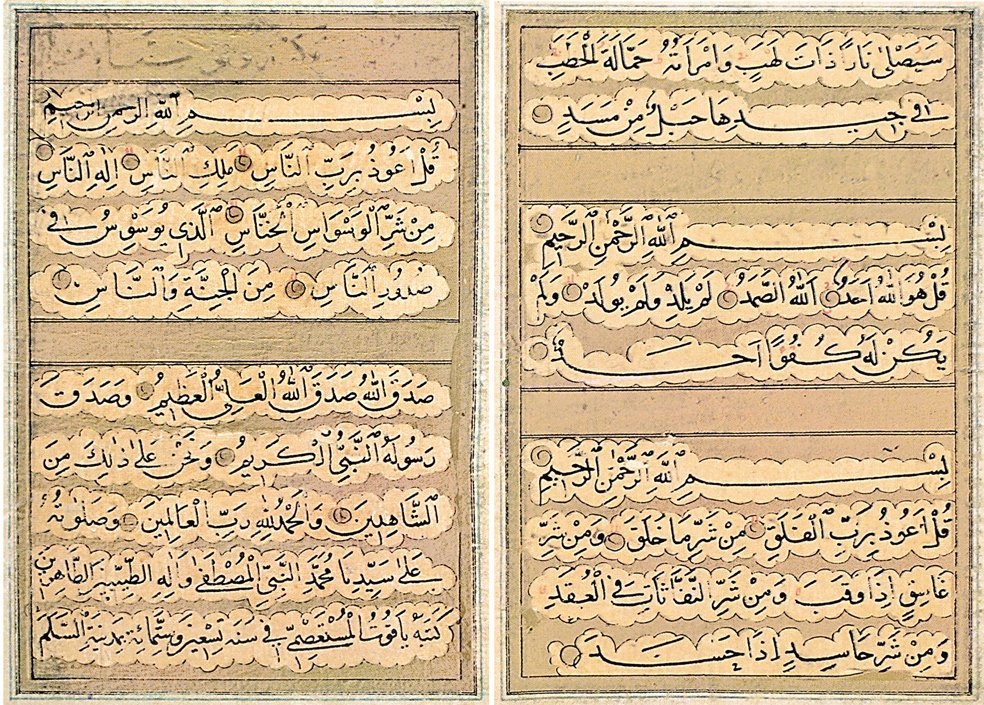 سَيَصْلَىٰ نَارًا ذَاتَ لَهَبٍ وَامْرَأَتُهُ حَمَّالَةَ الْحَطَبِ
فِي جِيدِهَا حَبْلٌ مِنْ مَسَدٍ
بِسْمِ ٱللَّهِ ٱلرَّحْمٰنِ ٱلرَّحِيمِ
قُلْ هُوَ اللَّهُ أَحَدٌ ٱللَّهُ الصَّمَدُ لَمْ يَلِدْ وَلَمْ يُولَدْ وَلَمْ
يَكُنْ لَهُ كُفُوًا أَحَدٌ
بِسْمِ ٱللَّهِ ٱلرَّحْمٰنِ ٱلرَّحِيمِ
قُلْ أَعُوذُ بِرَبِّ ٱلْفَلَقِ مِنْ شَرِّ مَا خَلَقَ وَمِنْ شَرِّ
غَاسِقٍ إِذَا وَقَبَ وَمِنْ شَرِّ النَّفَّاثَاتِ فِي الْعُقَدِ
وَمِنْ شَرِّ حَاسِدٍ إِذَا حَسَدَ
بِسْمِ ٱللَّهِ الرَّحْمٰنِ الرَّحِيمِ
قُلْ أَعُوذُ بِرَبِّ ٱلنَّاسِ مَلِكِ ٱلنَّاسِ إِلٰهِ ٱلنَّاسِ
مِنْ شَرِّ ٱلْوَسْوَاسِ ٱلْخَنَّاسِ ٱلَّذِي يُوَسْوِسُ فِي
صُدُورِ ٱلنَّاسِ مِنَ الْجِنَّةِ وَٱلنَّاسِ
صَدَقَ اللَّهُ صَدَقَ ٱللَّهُ الْعَلِيُّ الْعَظِيمُ وَصَدَقَ
رَسُولُهُ ٱلنَّبِيُّ الْكَرِيمُ وَنَحْنُ عَلَىٰ ذٰلِكَ مِنَ
ٱلشَّاهِدِينَ وَالْحَمْدُ لِلَّهِ رَبِّ الْعَالَمِينَ وَصَلَوٰتُهُ
عَلَىٰ سَيِّدِنَا مُحَمَّدٍ النَّبِيِّ الْمُصْطَفَىٰ وَآلِهِ الطَّيِّبِينَ الطَّاهِرِينَ
كَتَبَهُ يَاقُوتُ الْمُسْتَعْصِمِيُّ فِي سَنَةِ تِسْعِينَ وَسِتِّمِائَةٍ بِمَدِينَةِ السَّلٰمِ